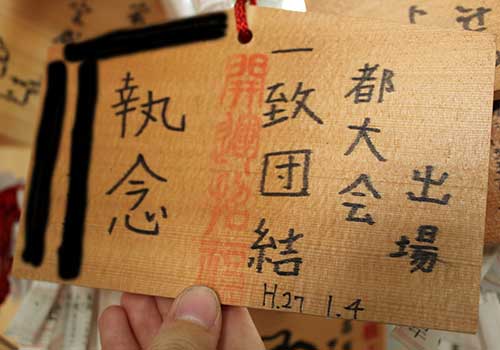 都大会
出場
一致団結
執念
H.27 1.4
開運